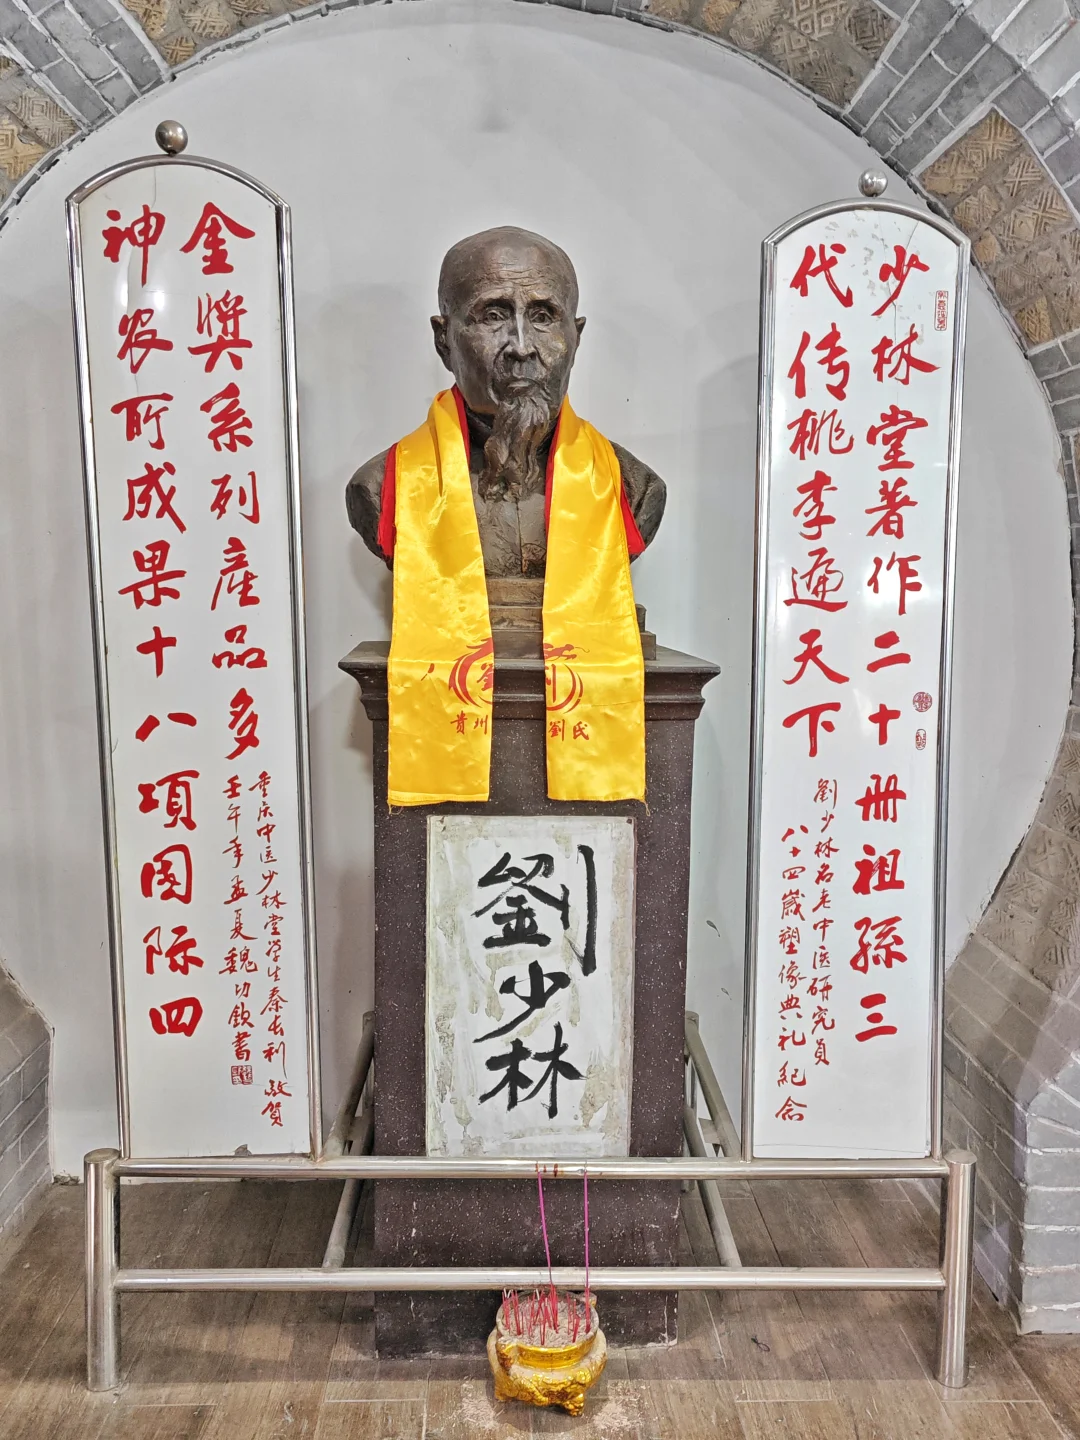 少林堂著作二十册祖孫三
代传桃李遍天下
劉少林名老中医研究員
八十四歲塑像典礼紀念
金獎系列產品多
神农所成果十八項国际四
重庆中医少林堂学生秦长利敬贺
壬午年孟夏魏功钦書
貴州劉氏
劉少林